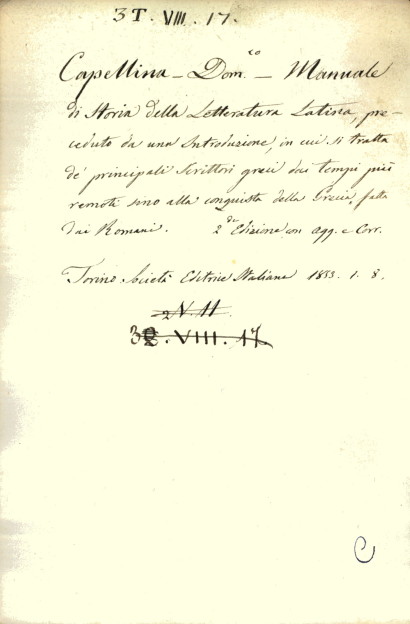 3T. VIII. 17.
Capellina - Dom.co - Manuale
di Storia della Letteratura Latina, pre-
ceduto da una Introduzione, in cui si tratta
de' principali Scrittori greci dai tempi più
remoti sino alla conquista della Grecia, fatta
dai Romani. 2.da Edizione con agg. e Corr.
Torino Società Editrice Italiana 1853. 1. 8.
2 N. 11
VIII. 17
C